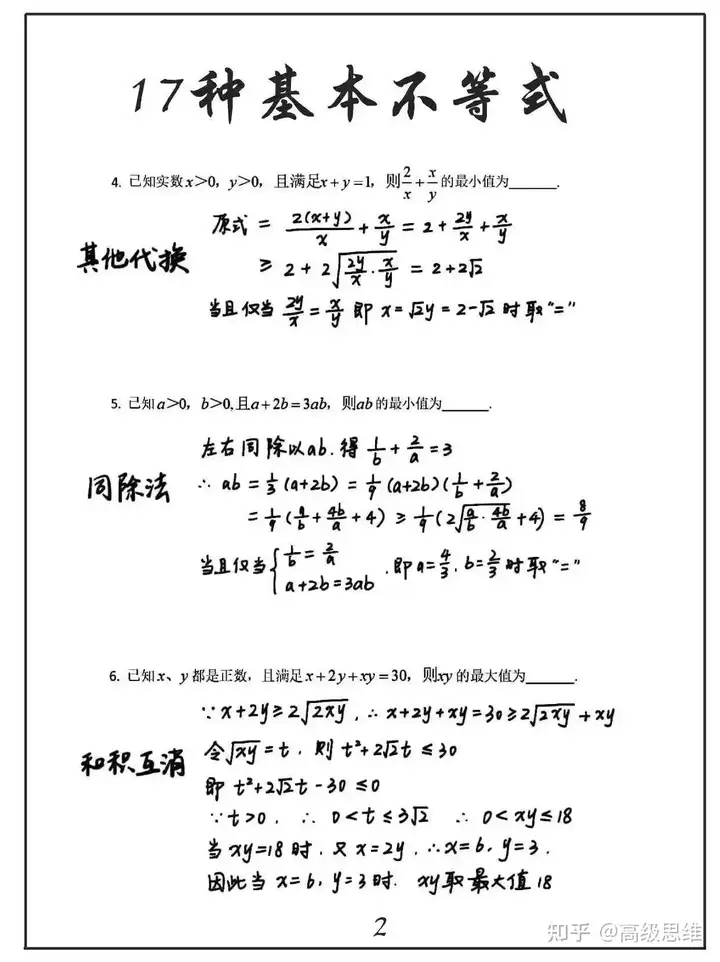 17种基本不等式
4. 已知实数x>0，y>0，且满足x+y=1，则2/x+x/y的最小值为______.
其他代换
原式 = 2(x+y)/x + x/y = 2 + 2y/x + x/y
≥ 2 + 2√(2y/x · x/y) = 2+2√2
当且仅当 2y/x = x/y 即 x=√2y=2-√2 时取“=”
5. 已知a>0，b>0,且a+2b=3ab，则ab的最小值为______.
同除法
左右同除以ab.得 1/b + 2/a = 3
∴ ab = 1/3 (a+2b) = 1/9 (a+2b)(1/b + 2/a)
= 1/9 (a/b + 4b/a + 4) ≥ 1/9 (2√(a/b · 4b/a) + 4) = 8/9
当且仅当 { 1/b = 2/a
a+2b=3ab
.即a=4/3.b=2/3时取“=”
6. 已知x、y都是正数，且满足x+2y+xy=30，则xy的最大值为______.
和积互消
∵x+2y≥2√(2xy),∴x+2y+xy=30≥2√(2xy)+xy
令√(xy)=t.则 t²+2√2t≤30
即 t²+2√2t-30≤0
∵t>0. ∴ 0<t≤3√2 ∴ 0<xy≤18
当 xy=18 时.又 x=2y.∴x=6.y=3.
因此当 x=6.y=3时. xy取最大值18
2
知乎 @高级思维